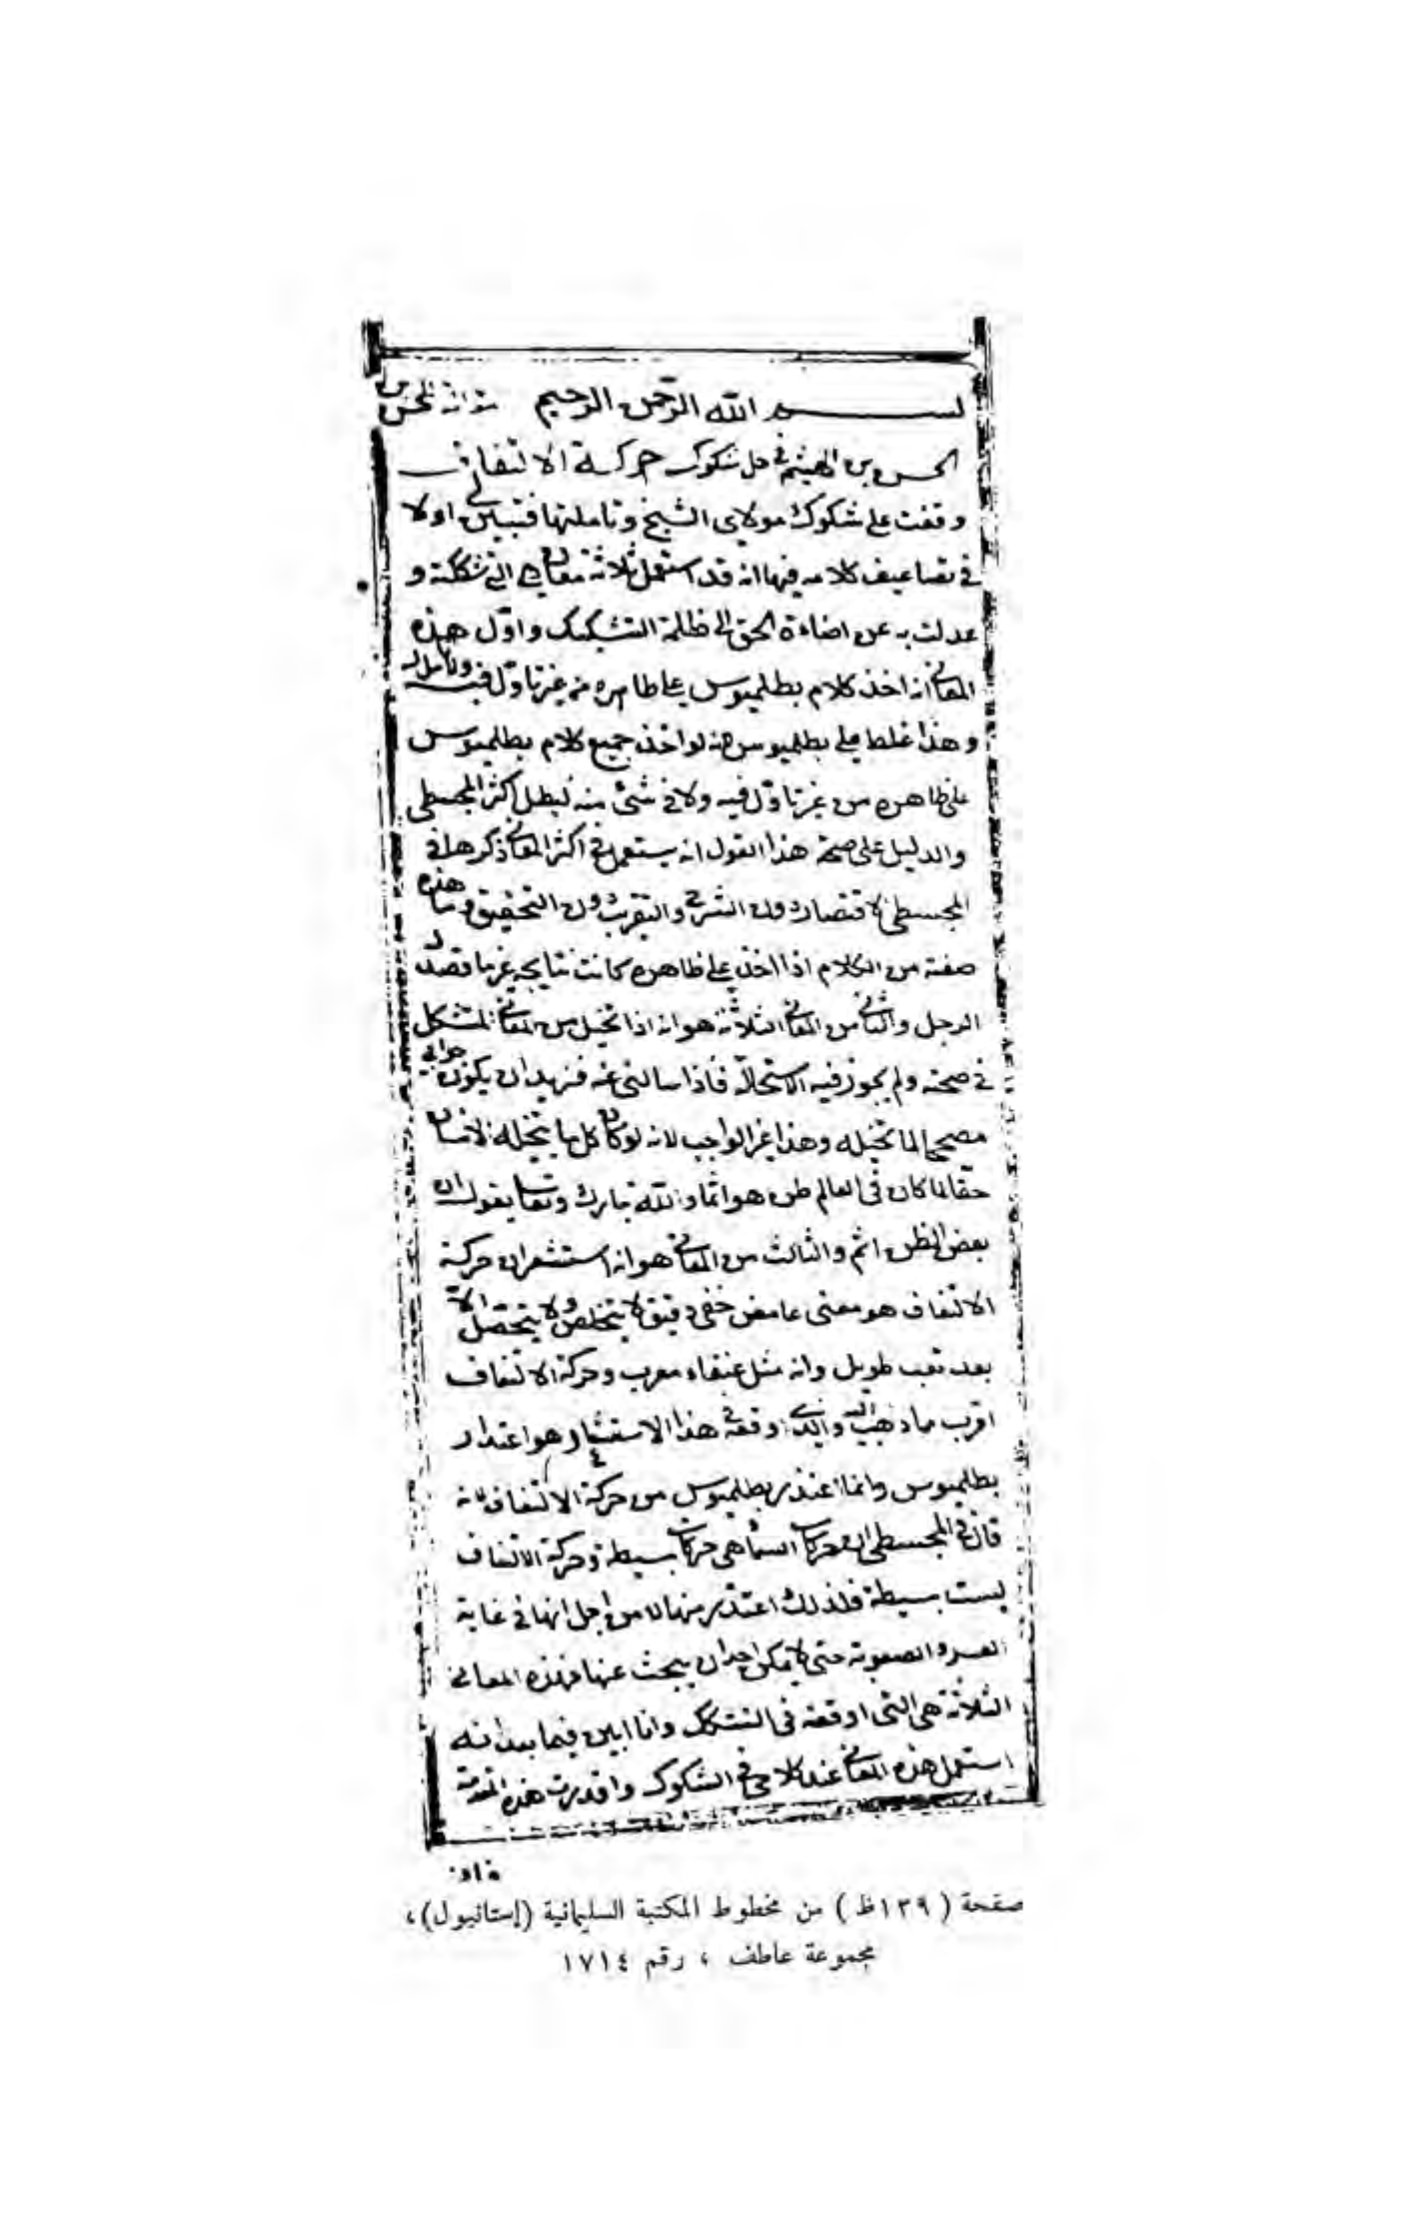 بسم الله الرحمن الرحيم مقالة للحسن بن
الحسن بن الهيثم في حل شكوك حركة الالتفاف
وقفت على شكوك مولاى الشيخ وتاملتها فتبين لى اولا
في تضاعيف كلامه فيها انه قد استعمل ثلاثة معان هي التي شككته و
عدلت به عن اضاءة الحق الى ظلمة التشكيك واول هذه
المعاني انه اخذ كلام بطلميوس على ظاهره من غير تاول فيه
وهذا غلط على بطلميوس لانه لو اخذ جميع كلام بطلميوس
على ظاهره من غير تاول فيه ولا في شئ منه لبطل اكثر المجسطي
والدليل على صحة هذا القول انه يستعمل في اكثر المعاني ذكرها في
المجسطي الاقتصار دون الشرح والتقريب دون التحقيق وما هذه
صفته من الكلام اذا اخذ على ظاهره كانت نتايجه غير ما قصد
الرجل والثاني من المعاني الثلاثة هو انه اذا تخيل من المعاني لم تشكل
في صحته ولم يجوز فيه الاستحالة فاذا سالني عنه فيريد ان يكون جوابي
مصححا لما تخيله وهذا غير الواجب لانه لو كان كل ما يتخيله الانسان
حقا لما كان في العالم ظن هو اثم والله تبارك وتعا يقول ان
بعض الظن اثم والثالث من المعاني هو انه استشعر ان حركة
الالتفاف هو معنى غامض خفي دقيق لا يتخلص ولا يتحصل الا
بعد تعب طويل وانه مثل عنقاء مغرب وحركة الالتفاف
اقرب مما ذهب اليه والذي اوقعه في هذا الاستشعار هو اعتذار
بطلميوس وانما اعتذر بطلميوس من حركة الالتفاف لانه
قال في المجسطي ان حركات السماء هي حركات بسيطة وحركة الالتفاف
ليست بسيطة فلذلك اعتذر منها لا من اجل انها في غاية
العسر والصعوبة حتى لا يمكن احدا ان يبحث عنها فهذه المعاني
الثلاثة هي التي اوقعته في التشكك وانا ابين فيما بعد انه
استعمل هذه المعاني عند كلامه في الشكوك وا قدمت هذه المقدمة
صفحة (١٣٩ظ) من مخطوط المكتبة السليمانية (إستانبول)،
مجموعة عاطف ، رقم ١٧١٤